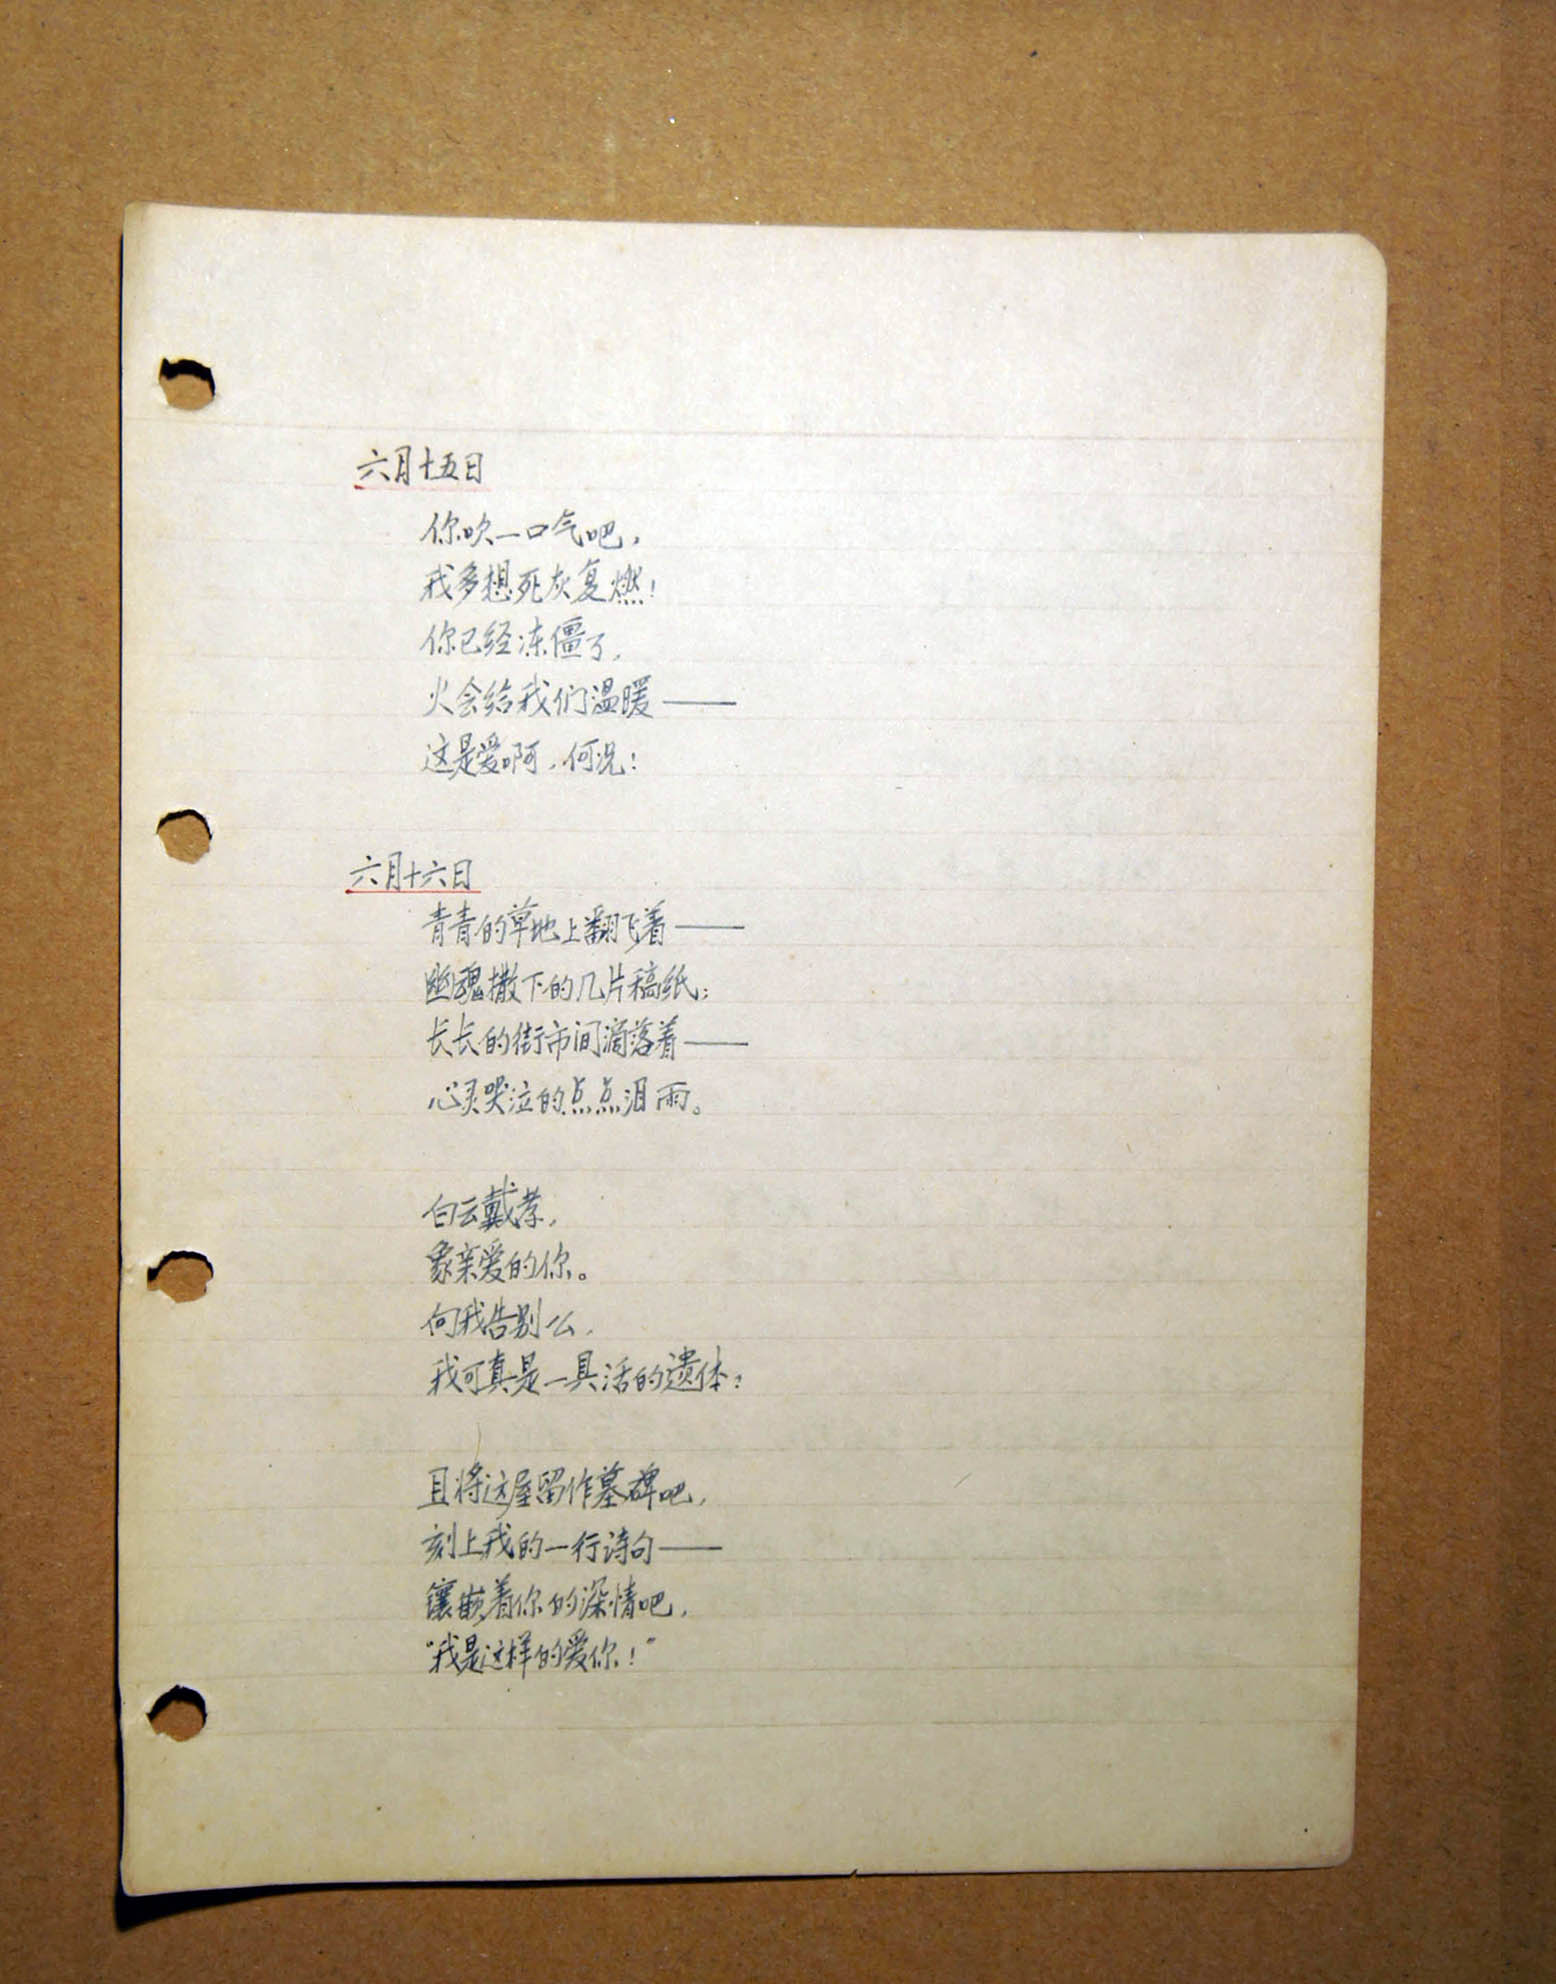 六月十五日
你吹一口气吧，
我多想死灰复燃！
你已经冻僵了，
火会给我们温暖——
这是爱啊，何况！
六月十六日
青青的草地上翻飞着——
幽魂撒下的几片稿纸；
长长的街市间滴落着——
心灵哭泣的点点泪雨。
白云戴孝，
象亲爱的你。
向我告别么，
我可真是一具活的遗体？
且将这屋留作墓碑吧，
刻上我的一行诗句——
镶嵌着你的深情吧，
“我是这样的爱你！”